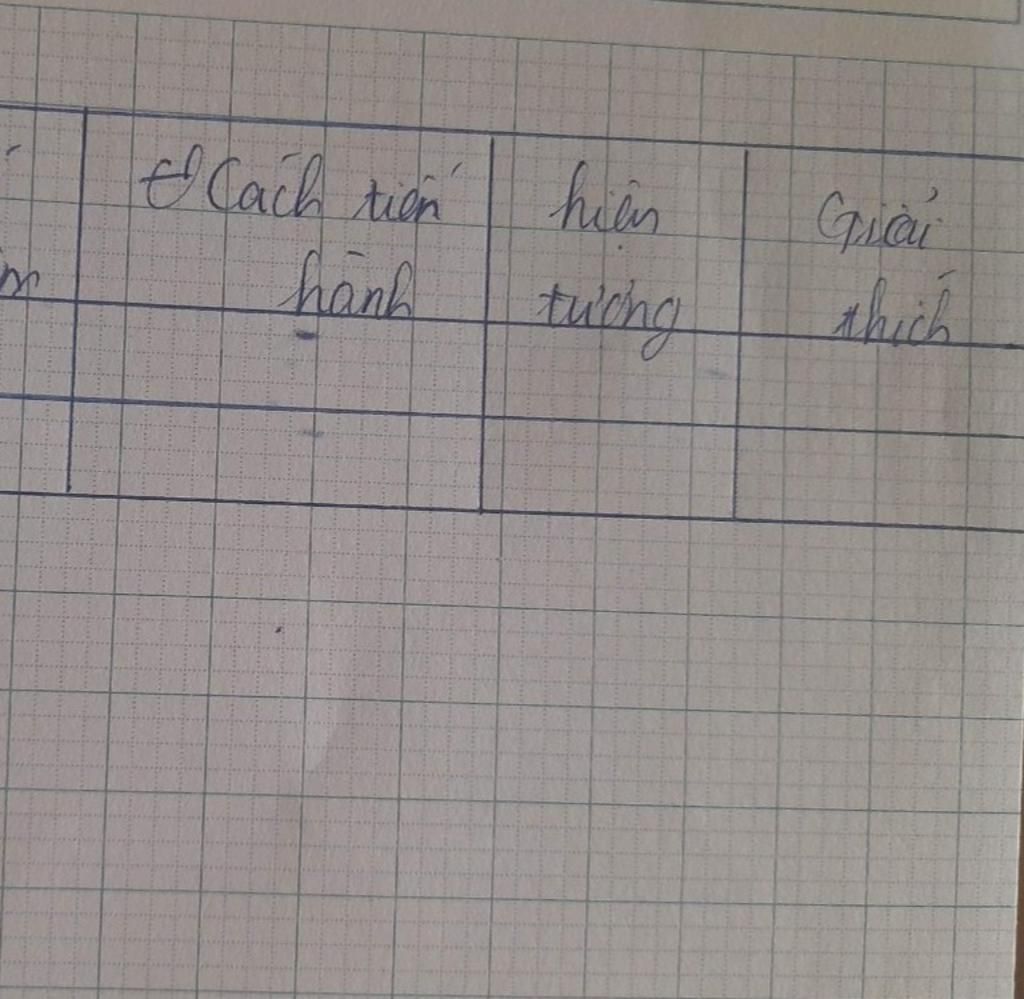 Cách tiến
hành
hiện
tượng
Giải
thích